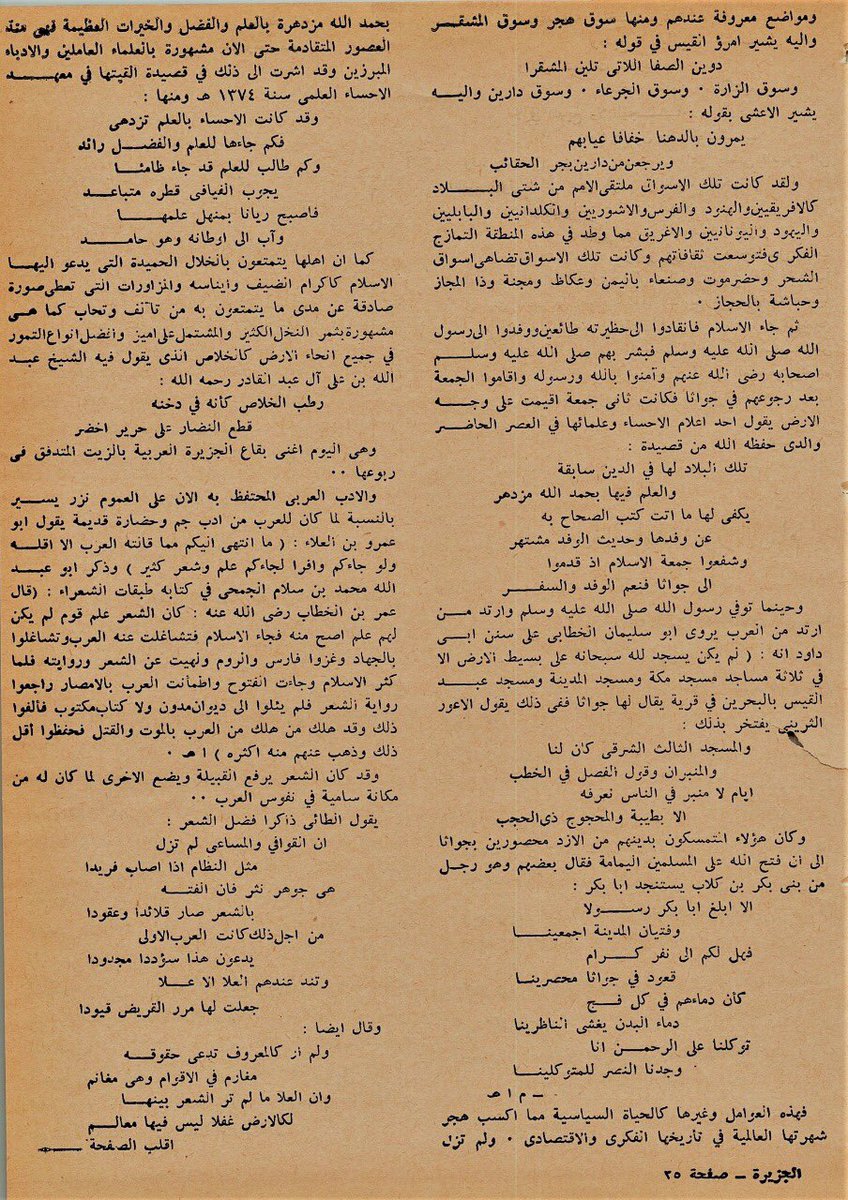 ومواضع معروفة عندهم ومنها سوق هجر وسوق المشقر
واليه يشير امرؤ القيس في قوله :
دوين الصفا اللاتى تلين المشقرا
وسوق الزارة ٠ وسوق الجرعاء ٠ وسوق دارين واليه
يشير الاعشى بقوله :
يمرون بالدهنا خفافا عيابهم
ويرجعن من دارين بجر الحقائب
ولقد كانت تلك الاسواق ملتقى الامم من شتى البلاد
كالافريقيين والهنود والفرس والاشوريين والكلدانيين والبابليين
واليهود واليونانيين والاغريق مما وطد في هذه المنطقة التمازج
الفكرى فتوسعت ثقافاتهم وكانت تلك الاسواق تضاهى اسواق
الشحر وحضرموت وصنعاء باليمن وعكاظ ومجنة وذا المجاز
وحباشة بالحجاز ٠
ثم جاء الاسلام فانقادوا الى حظيرته طائعين ووفدوا الى رسول
الله صلى الله عليه وسلم فبشر بهم صلى الله عليه وسلم
اصحابه رضى الله عنهم وآمنوا بالله ورسوله واقاموا الجمعة
بعد رجوعهم في جواثا فكانت ثانى جمعة اقيمت على وجه
الارض يقول احد اعلام الاحساء وعلمائها في العصر الحاضر
والدى حفظه الله من قصيدة :
تلك البلاد لها في الدين سابقة
والعلم فيها بحمد الله مزدهر
يكفى لها ما اتت كتب الصحاح به
عن وفدها وحديث الوفد مشتهر
وشفعوا جمعة الاسلام اذ قدموا
الى جواثا فنعم الوفد والسفر
وحينما توفي رسول الله صلى الله عليه وسلم وارتد من
ارتد من العرب يروى ابو سليمان الخطابى على سنن ابى
داود انه : ( لم يكن يسجد لله سبحانه على بسيط الارض الا
في ثلاثة مساجد مسجد مكة ومسجد المدينة ومسجد عبد
القيس بالبحرين في قرية يقال لها جواثا ففى ذلك يقول الاعور
الثرينى يفتخر بذلك :
والمسجد الثالث الشرقى كان لنا
والمنبران وقول الفصل في الخطب
ايام لا منبر في الناس نعرفه
الا بطيبة والمحجوج ذى الحجب
وكان هؤلاء المتمسكون بدينهم من الازد محصورين بجواثا
الى ان فتح الله على المسلمين اليمامة فقال بعضهم وهو رجل
من بنى بكر بن كلاب يستنجد ابا بكر :
الا ابلغ ابا بكر رسولا
وفتيان المدينة اجمعينا
فهل لكم الى نفر كرام
قعود في جواثا محصرينا
كأن دماءهم في كل فج
دماء البدن يغشى الناظرينا
توكلنا على الرحمن انا
وجدنا النصر للمتوكلينا
ـ م ا هـ
فهذه العوامل وغيرها كالحياة السياسية مما اكسب هجر
شهرتها العالمية في تأريخها الفكرى والاقتصادى ٠ ولم تزل
بحمد الله مزدهرة بالعلم والفضل والخيرات العظيمة فهى منذ
العصور المتقادمة حتى الان مشهورة بالعلماء العاملين والادباء
المبرزين وقد اشرت الى ذلك في قصيدة القيتها في معهد
الاحساء العلمى سنة ١٣٧٤ هـ ومنها :
وقد كانت الاحساء بالعلم تزدهى
فكم جاءها للعلم والفضل رائد
وكم طالب للعلم قد جاء ظامئا
يجوب الفيافى قطره متباعد
فاصبح ريانا بمنهل علمها
وآب الى اوطانه وهو حامد
كما ان اهلها يتمتعون بالخلال الحميدة التى يدعو اليها
الاسلام كاكرام الضيف وايناسه والمزاورات التى تعطى صورة
صادقة عن مدى ما يتمتعون به من تآلف وتحاب كما هى
مشهورة بثمر النخل الكثير والمشتمل على اميز وافضل انواع التمور
في جميع انحاء الارض كالخلاص الذى يقول فيه الشيخ عبد
الله بن على آل عبد القادر رحمه الله :
رطب الخلاص كأنه في دخنه
قطع النضار على حرير اخضر
وهى اليوم اغنى بقاع الجزيرة العربية بالزيت المتدفق فى
ربوعها ٠٠
والادب العربى المحتفظ به الان على العموم نزر يسير
بالنسبة لما كان للعرب من ادب جم وحضارة قديمة يقول ابو
عمرو بن العلاء : ( ما انتهى اليكم مما قالته العرب الا اقله
ولو جاءكم وافرا لجاءكم علم وشعر كثير ) وذكر ابو عبد
الله محمد بن سلام الجمحى في كتابه طبقات الشعراء : (قال
عمر بن الخطاب رضى الله عنه : كان الشعر علم قوم لم يكن
لهم علم اصح منه فجاء الاسلام فتشاغلت عنه العرب وتشاغلوا
بالجهاد وغزوا فارس والروم ولهيت عن الشعر وروايته فلما
كثر الاسلام وجاءت الفتوح واطمأنت العرب بالامصار راجعوا
رواية الشعر فلم يئلوا الى ديوان مدون ولا كتاب مكتوب فألفوا
ذلك وقد هلك من هلك من العرب بالموت والقتل فحفظوا أقل
ذلك وذهب عنهم منه اكثره ) ا هـ ٠
وقد كان الشعر يرفع القبيلة ويضع الاخرى لما كان له من
مكانة سامية في نفوس العرب ٠٠
يقول الطائى ذاكرا فضل الشعر :
ان القوافي والمساعى لم تزل
مثل النظام اذا اصاب فريدا
هى جوهر نثر فان الفته
بالشعر صار قلائدا وعقودا
من اجل ذلك كانت العرب الاولى
يدعون هذا سؤددا مجدودا
وتند عندهم العلا الا علا
جعلت لها مرر القريض قيودا
وقال ايضا :
ولم أر كالمعروف تدعى حقوقه
مغارم في الاقوام وهى مغانم
وان العلا ما لم تر الشعر بينها
لكالارض غفلا ليس فيها معالم
اقلب الصفحة
الجزيرة ـ صفحة ٢٥